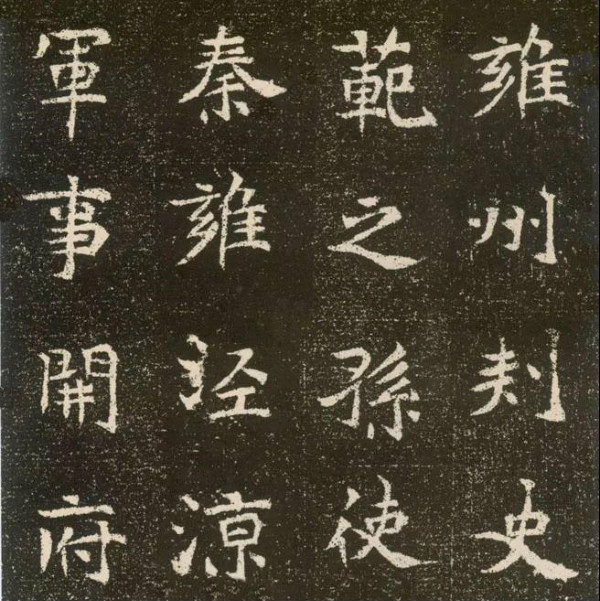 雍州刾史
範之孫使
秦雍泾涼
軍事開府